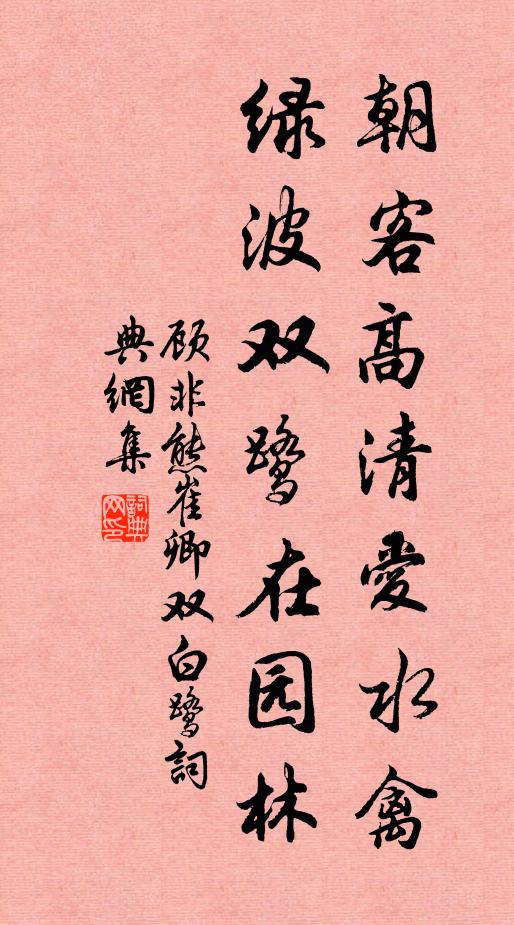 朝客高清愛水禽
绿波双鹭在园林
顾非熊崔卿双白鹭詞
典網集
詞典网印